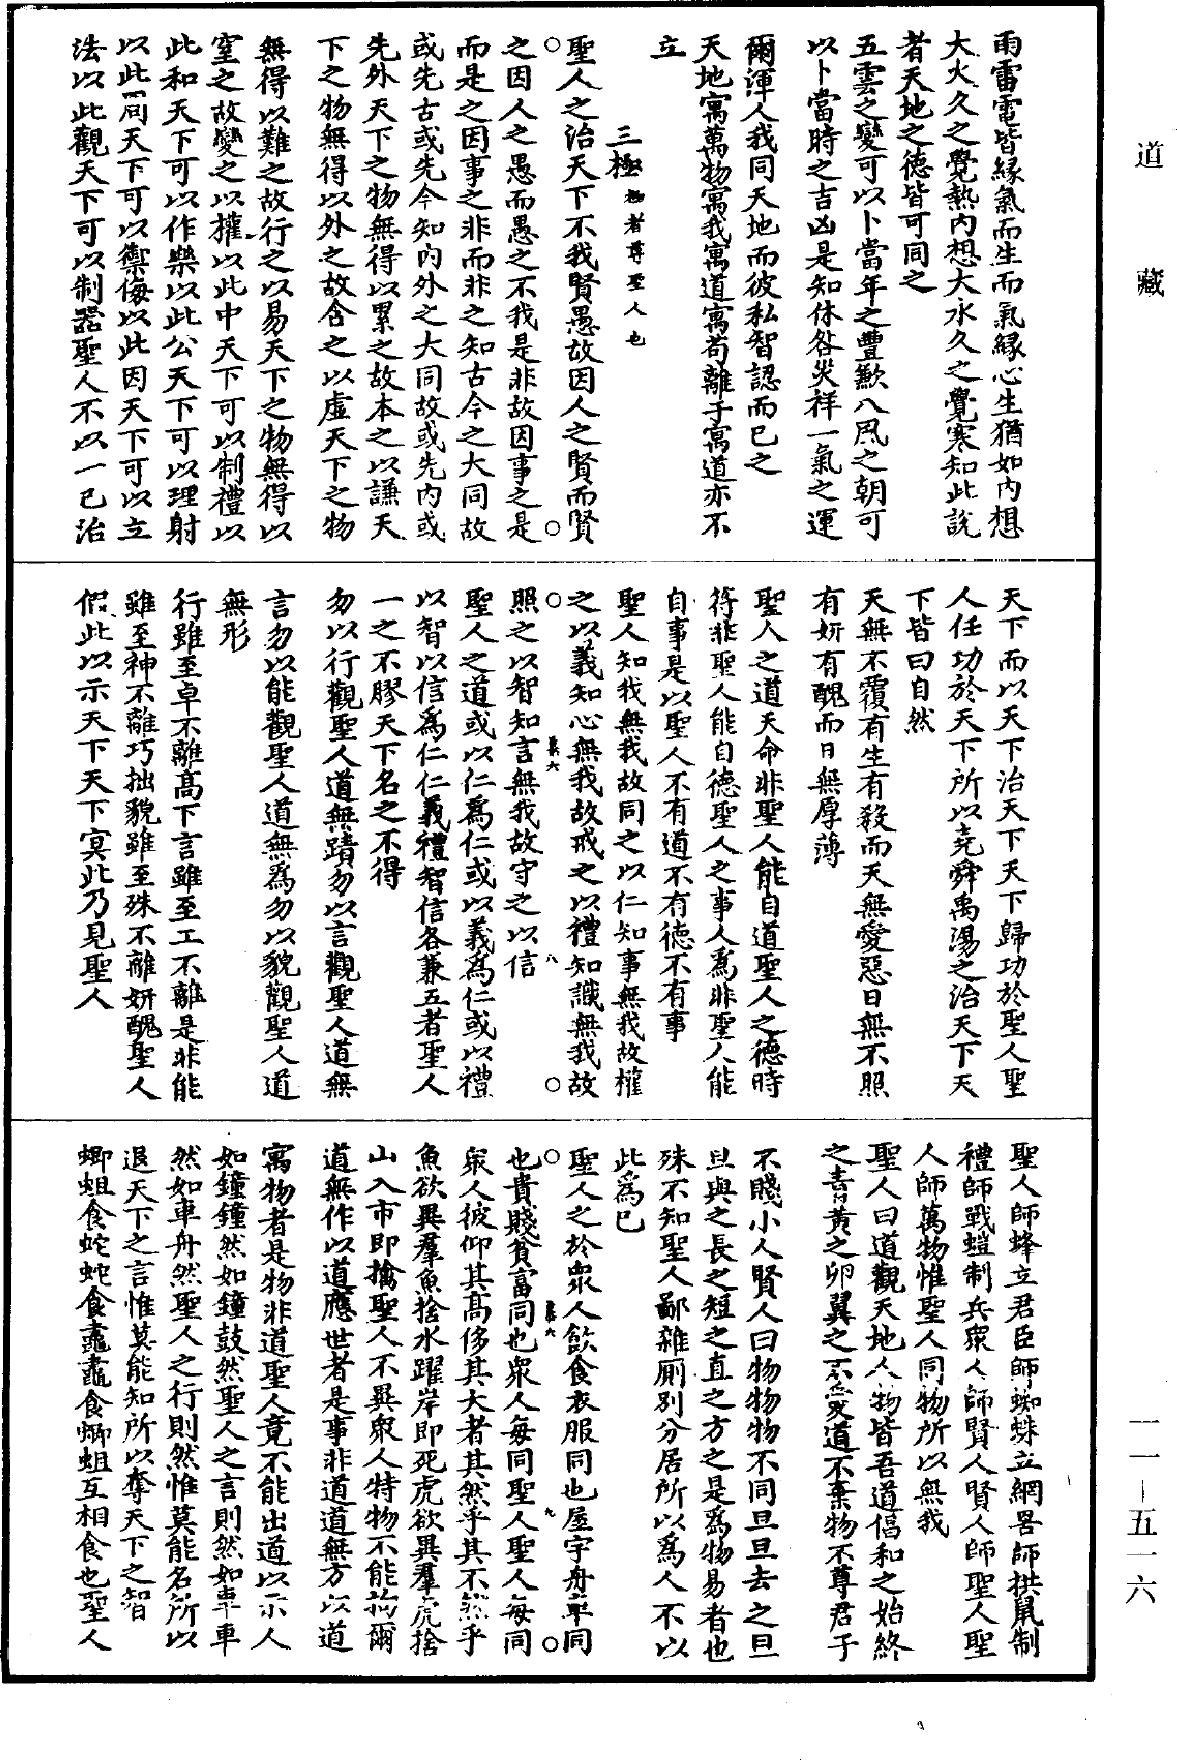 道藏
一一－五一六
雨雷電皆緣氣而生而氣緣心生猶如內想
大火久之覺熱內想大水久之覺寒知此說
者天地之德皆可同之
五雲之變可以卜當年之豐歉八風之朝可
以卜當時之吉凶是知休咎災祥一氣之運
爾渾人我同天地而彼私智認而已之
天地寓萬物寓我寓道寓苟離于寓道亦不
立
三極極者尊聖人也
聖人之治天下不我賢愚故因人之賢而賢
之因人之愚而愚之不我是非故因事之是
而是之因事之非而非之知古今之大同故
或先古或先今知內外之大同故或先內或
先外天下之物無得以累之故本之以謙天
下之物無得以外之故含之以虛天下之物
無得以難之故行之以易天下之物無得以
窒之故變之以權以此中天下可以制禮以
此和天下可以作樂以此公天下可以理射
以此周天下可以禦侮以此因天下可以立
法以此觀天下可以制器聖人不以一己治
天下而以天下治天下天下歸功於聖人聖
人任功於天下所以堯舜禹湯之治天下天
下皆曰自然
天無不覆有生有殺而天無愛惡日無不照
有妍有醜而日無厚薄
聖人之道天命非聖人能自道聖人之德時
符非聖人能自德聖人之事人為非聖人能
自事是以聖人不有道不有德不有事
聖人知我無我故同之以仁知事無我故權
之以義知心無我故戒之以禮知識無我故
照之以智知言無我故守之以信
聖人之道或以仁為仁或以義為仁或以禮
以智以信為仁仁義禮智信各兼五者聖人
一之不膠天下名之不得
勿以行觀聖人道無蹟勿以言觀聖人道無
言勿以能觀聖人道無為勿以貌觀聖人道
無形
行雖至卓不離高下言雖至工不離是非能
雖至神不離巧拙貌雖至殊不離妍醜聖人
假此以示天下天下冥此乃見聖人
聖人師蜂立君臣師蜘蛛立網罟師拱鼠制
禮師戰螘制兵眾人師賢人賢人師聖人聖
人師萬物惟聖人同物所以無我
聖人曰道觀天地人物皆吾道倡和之始終
之青黃之卵翼之不愛道不棄物不尊君子
不賤小人賢人曰物物物不同旦旦去之旦
旦與之長之短之直之方之是為物易者也
殊不知聖人鄙雜廁別分居所以為人不以
此為己
聖人之於眾人飲食衣服同也屋宇舟車同
也貴賤貧富同也眾人每同聖人聖人每同
眾人彼仰其高侈其大者其然乎其不然乎
魚欲異羣魚捨水躍岸即死虎欲異羣虎捨
山入市即擒聖人不異眾人特物不能拘爾
道無作以道應世者是事非道道無方以道
寓物者是物非道聖人竟不能出道以示人
如鐘鐘然如鐘鼓然聖人之言則然如車車
然如車舟然聖人之行則然惟莫能名所以
退天下之言惟莫能知所以奪天下之智
蝍蛆食蛇蛇食鼃鼃食蝍蛆互相食也聖人